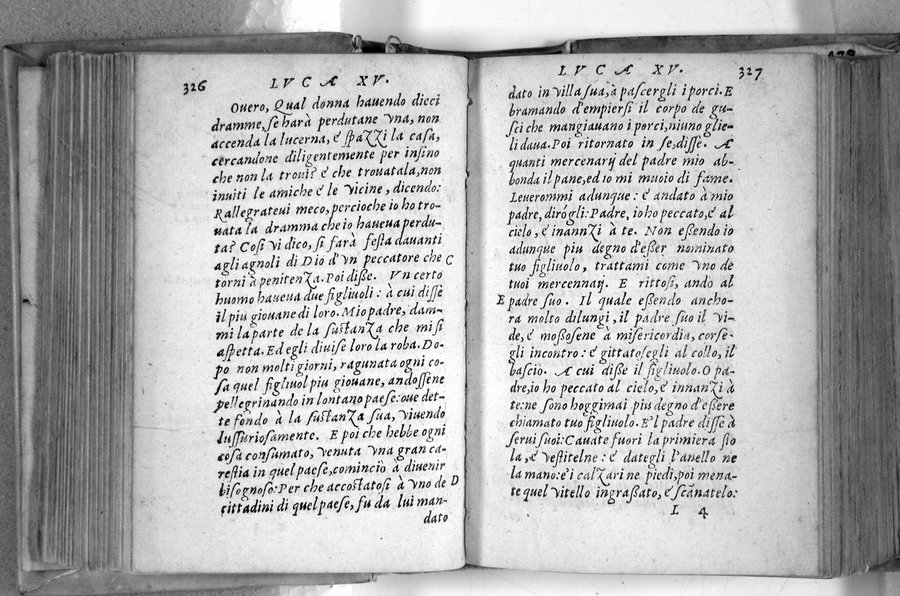 326 LVCÆ XV.
Overo, Qual donna hauendo dieci
dramme, se harà perdutane vna, non
accenda la lucerna, e spazzi la casa,
cercandone diligentemente per insino
che non la troui? e che trouatala, non
inuiti le amiche e le vicine, dicendo:
Rallegrateui meco, percioche io ho tro-
uata la dramma che io haueua perdu-
ta? Cosi vi dico, si farà festa dauanti
agli agnoli di Dio d'vn peccatore che C
torni à penitenza. Poi disse. Vn certo
huomo haueua due figliuoli: à cui disse
il piu giouane di loro. Mio padre, dam-
mi la parte de la sustanza che mi si
aspetta. Ed egli diuise loro la roba. Do-
po non molti giorni, ragunata ogni co-
sa quel figliuol piu giouane, andossene
pellegrinando in lontano paese: oue det-
te fondo à la sustanza sua, viuendo
lussuriosamente. E poi che hebbe ogni
cosa consumato, venuta vna gran ca-
restia in quel paese, cominciò à diuenir
bisognoso: Per che accostatosi à vno de D
cittadini di quel paese, fu da lui man-
dato
LVCÆ XV. 327
dato in villa sua, à pascergli i porci. E
bramando d'empiersi il corpo de gu-
sci che mangiauano i porci, niuno glie-
li daua. Poi ritornato in se, disse. A
quanti mercenarij del padre mio ab-
bonda il pane, ed io mi muoio di fame.
Leuerommi adunque: e andato à mio
padre, dirògli: Padre, io ho peccato, e al
cielo, e inannzi à te. Non essendo io
adunque piu degno d'esser nominato
tuo figliuolo, trattami come vno de
tuoi mercennarij. E rittosi, andò al
E padre suo. Il quale essendo ancho-
ra molto dilungi, il padre suo il vi-
de, e mossosene à misericordia, corse-
gli incontro: e gittatosegli al collo, il
basciò. A cui disse il figliuolo. O pa-
dre, io ho peccato al cielo, e innanzi à
te: ne sono hoggimai piu degno d'essere
chiamato tuo figliuolo. E'l padre disse à
serui suoi: Cauate fuori la primiera sto
la, e vestitelne: e dategli l'anello ne
la mano: e'i calzari ne piedi, poi mena-
te quel vitello ingrassato, e scānatelo:
L 4